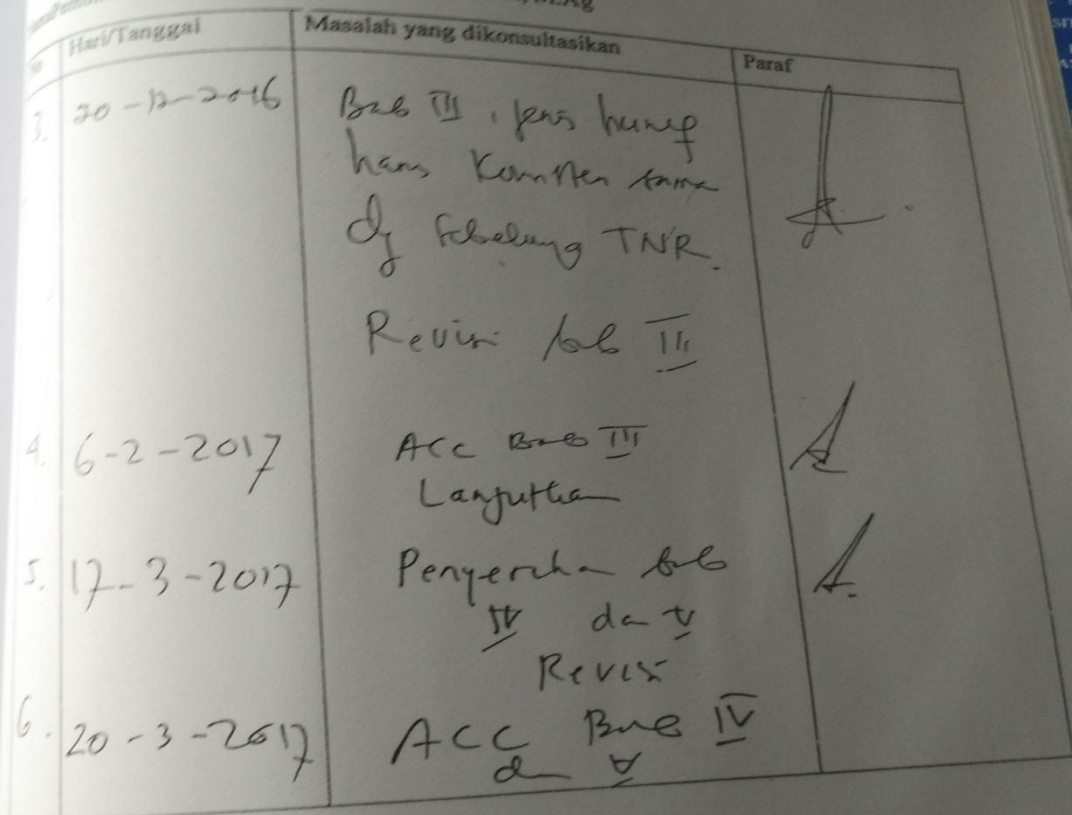 Hari/Tanggal
Masalah yang dikonsultasikan
Paraf
3. 20-12-2016
Bab III, jenis huruf
harus konsisten sama
dg sebelumnya TNR.
Revisi bab III
4. 6-2-2017
ACC Bab III
Lanjutkan
5. 17-3-2017
Penyerahan bab
IV dan V
Revisi
6. 20-3-2017
ACC Bab IV
dan V